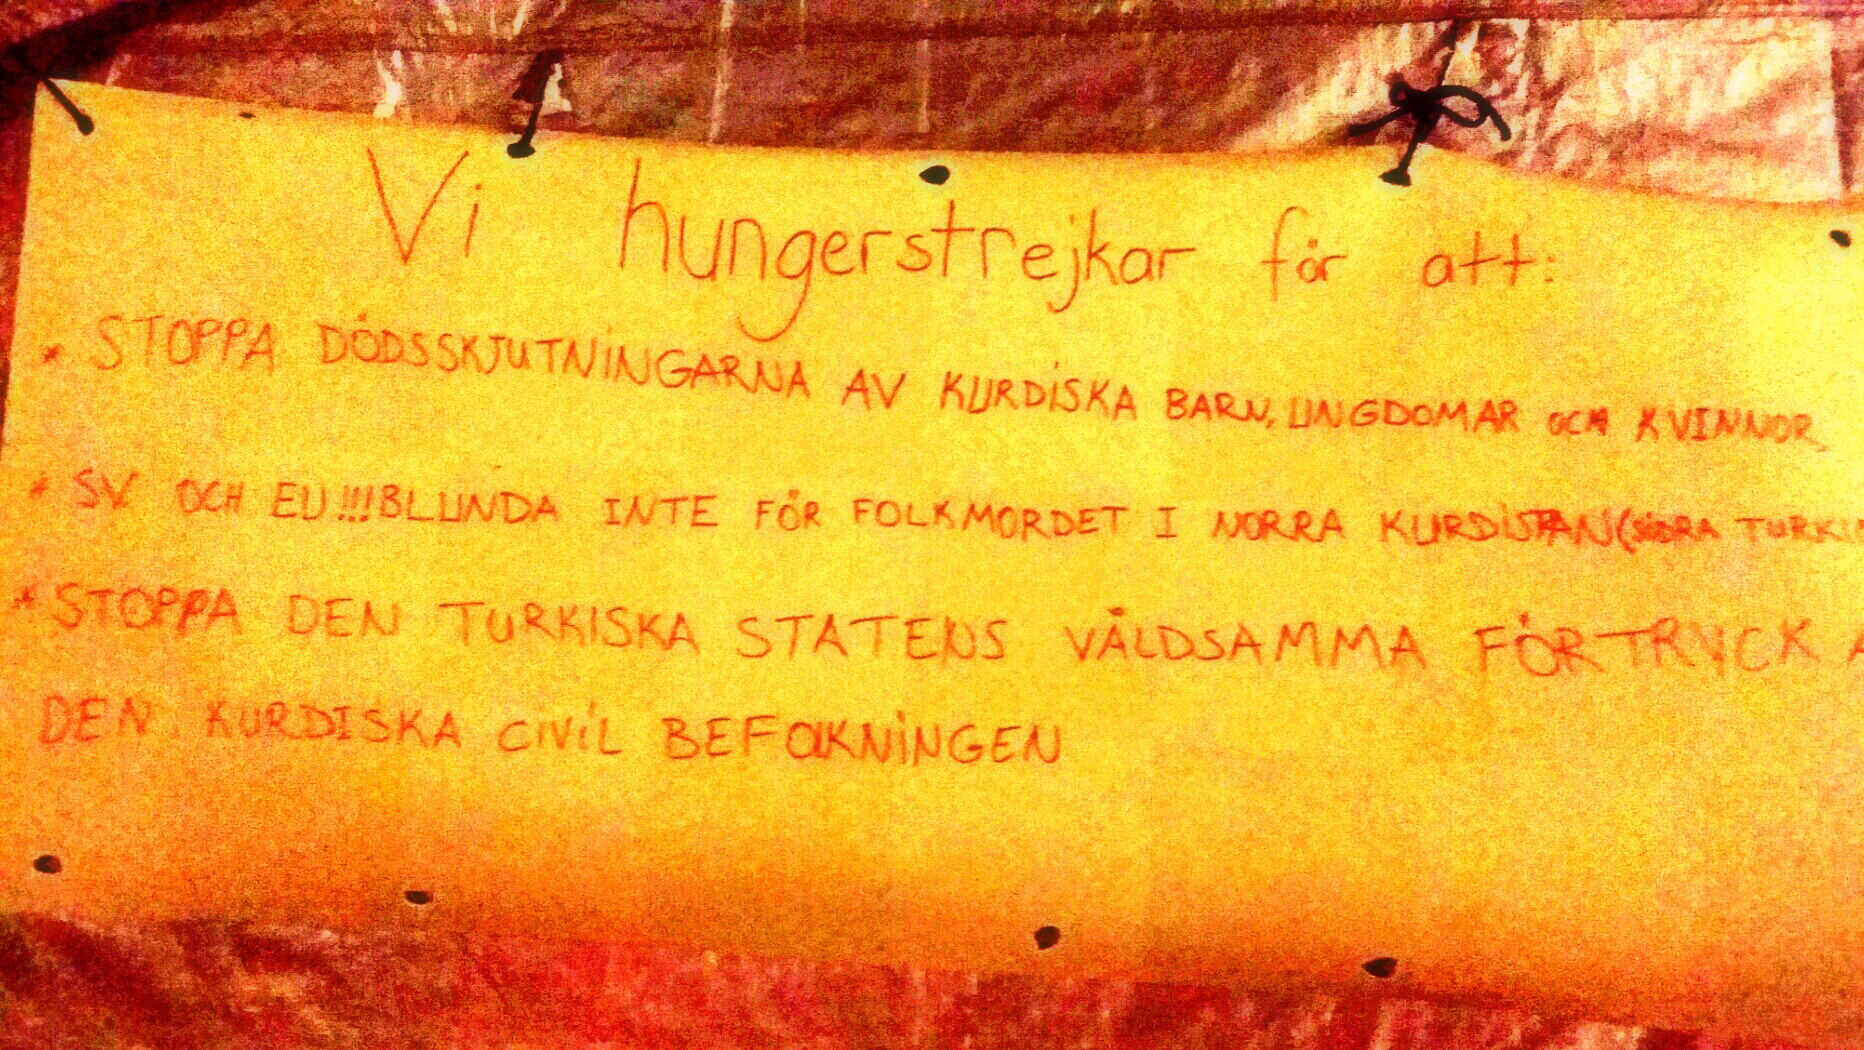 Vi hungerstrejkar för att:
* STOPPA DÖDSSKJUTNINGARNA AV KURDISKA BARN, UNGDOMAR OCH KVINNOR
* SV OCH EU!!! BLUNDA INTE FÖR FOLKMORDET I NORRA KURDISTAN (SÖDRA
* STOPPA DEN TURKISKA STATENS VÅLDSAMMA FÖRTRYCK
DEN KURDISKA CIVIL BEFOLKNINGEN